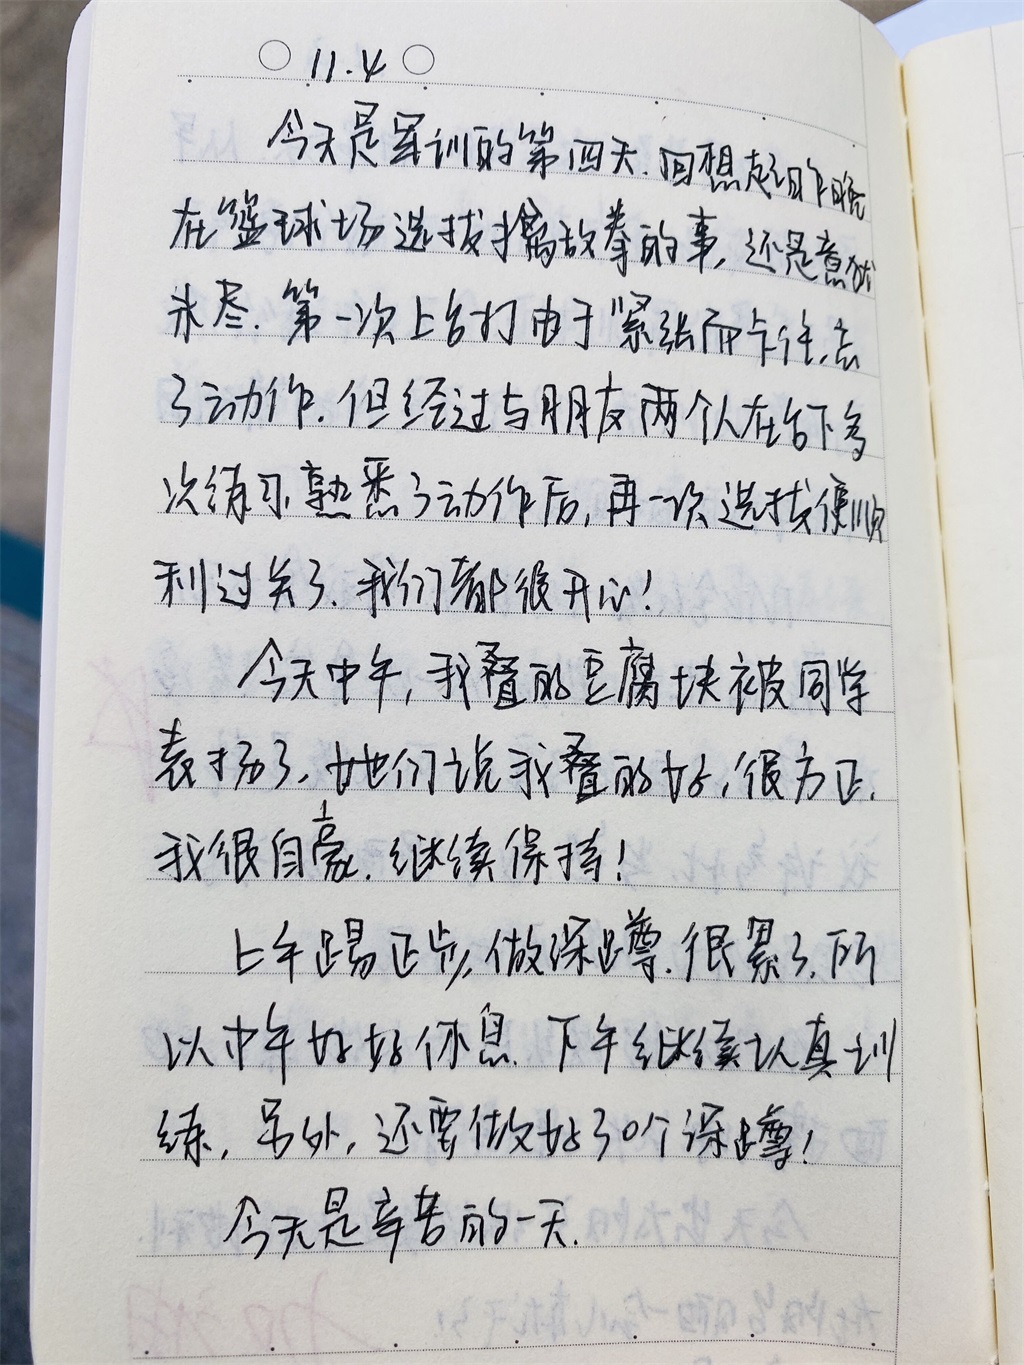 11.4
今天是军训的第四天.回想起昨晚
在篮球场选拔擒敌拳的事,还是意犹
未尽.第一次上台打由于紧张而卡住,忘
了动作.但经过与朋友两个人在台下多
次练习,熟悉了动作后,再一次选拔便顺
利过关了.我们都很开心!
今天中午,我叠的豆腐块被同学
表扬了.她们说我叠的好,很方正.
我很自豪.继续保持!
上午踢正步,做深蹲.很累了.所
以中午好好休息.下午继续认真训
练.另外,还要做好30个深蹲!
今天是辛苦的一天.